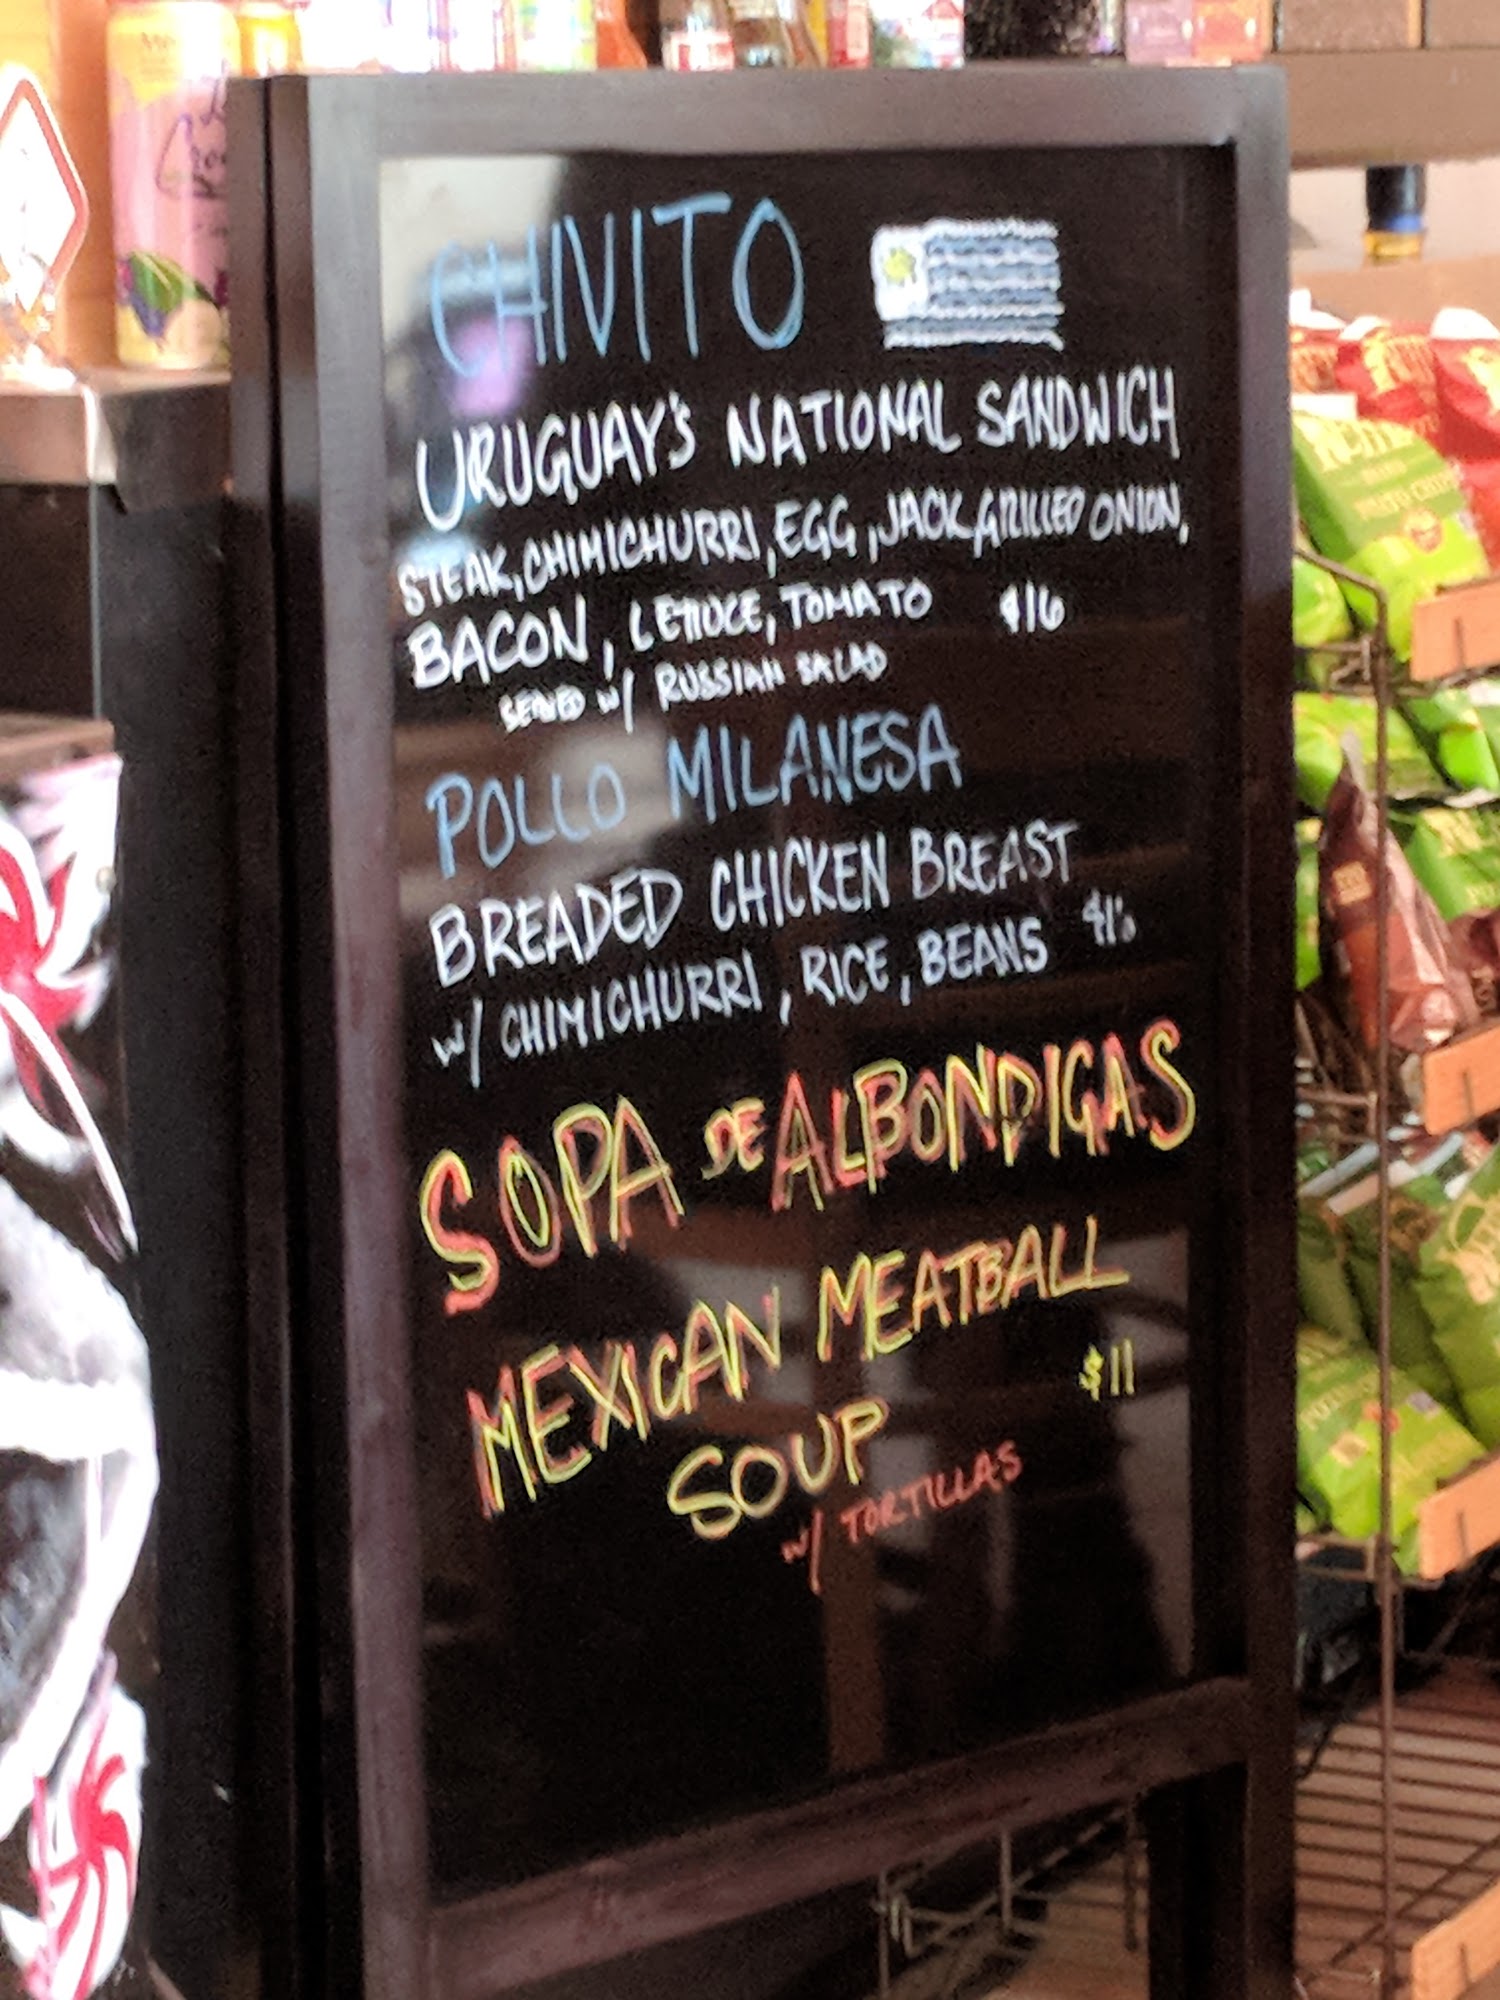 CHIVITO
URUGUAY'S NATIONAL SANDWICH
STEAK, CHIMICHURRI, EGG, JACK, GRILLED ONION,
BACON, LETTUCE, TOMATO $16
SERVED W/ RUSSIAN SALAD
POLLO MILANESA
BREADED CHICKEN BREAST
W/ CHIMICHURRI, RICE, BEANS
SOPA DE ALBONDIGAS
MEXICAN MEATBALL
SOUP $11
W/ TORTILLAS